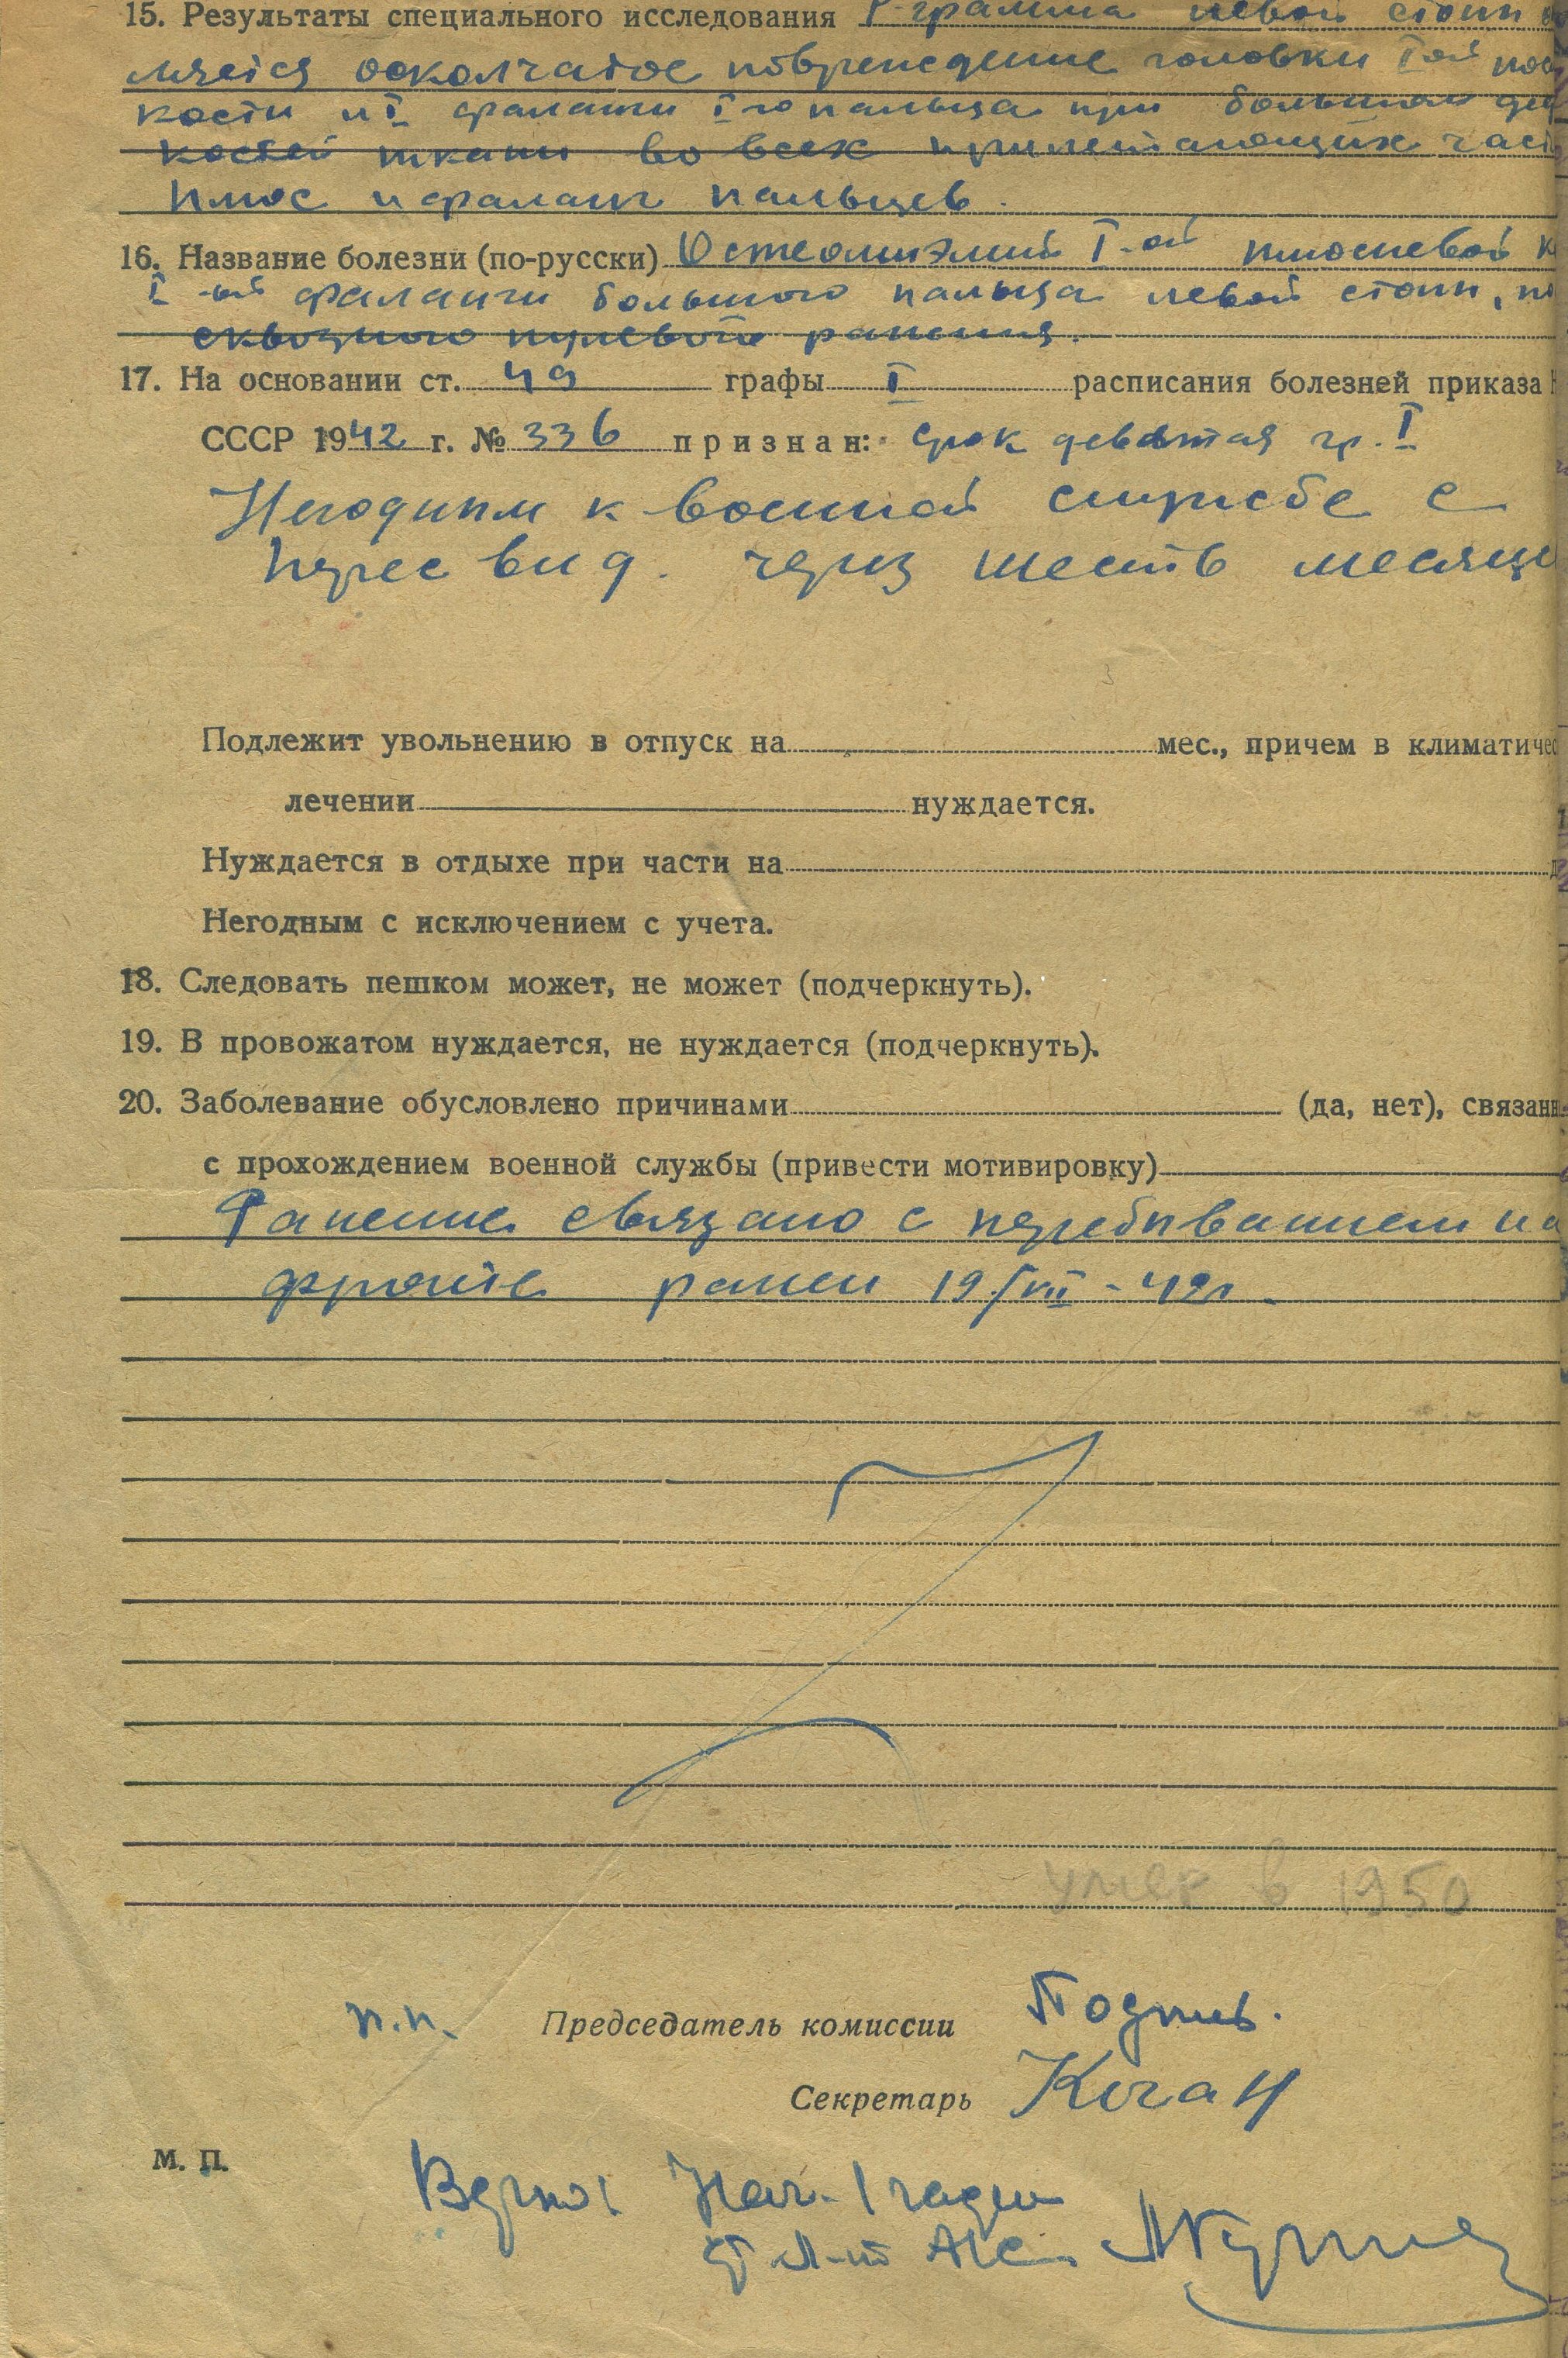 15. Результаты специального исследования Р-грамма левой стопы
мяется осколчатое повреждение головки I ой
кости и I фаланги I го пальца при большой
костей ткани во всех прилегающих
плюс и фаланг пальцев.
16. Название болезни (по-русски) Остеомиэлит I-ой плюсневой к
I-ый фаланги большого пальца левой стопы, по
сквозного пулевого ранения.
17. На основании ст. 49 графы I расписания болезней приказа Н
СССР 1942 г. № 336 признан: Сорок девятая гр. I
Негодным к военной службе с
переосвид. через шесть месяце
Подлежит увольнению в отпуск на мес., причем в климатичес
лечении нуждается.
Нуждается в отдыхе при части на д
Негодным с исключением с учета.
18. Следовать пешком может, не может (подчеркнуть).
19. В провожатом нуждается, не нуждается (подчеркнуть).
20. Заболевание обусловлено причинами (да, нет), связанн
с прохождением военной службы (привести мотивировку)
Ранение связано с пребыванием на
фронте ранен 19/VIII-42г.
умер в 1950
п.п. Председатель комиссии Подпись.
Секретарь Коган
М. П.
Верно: Нач. I части